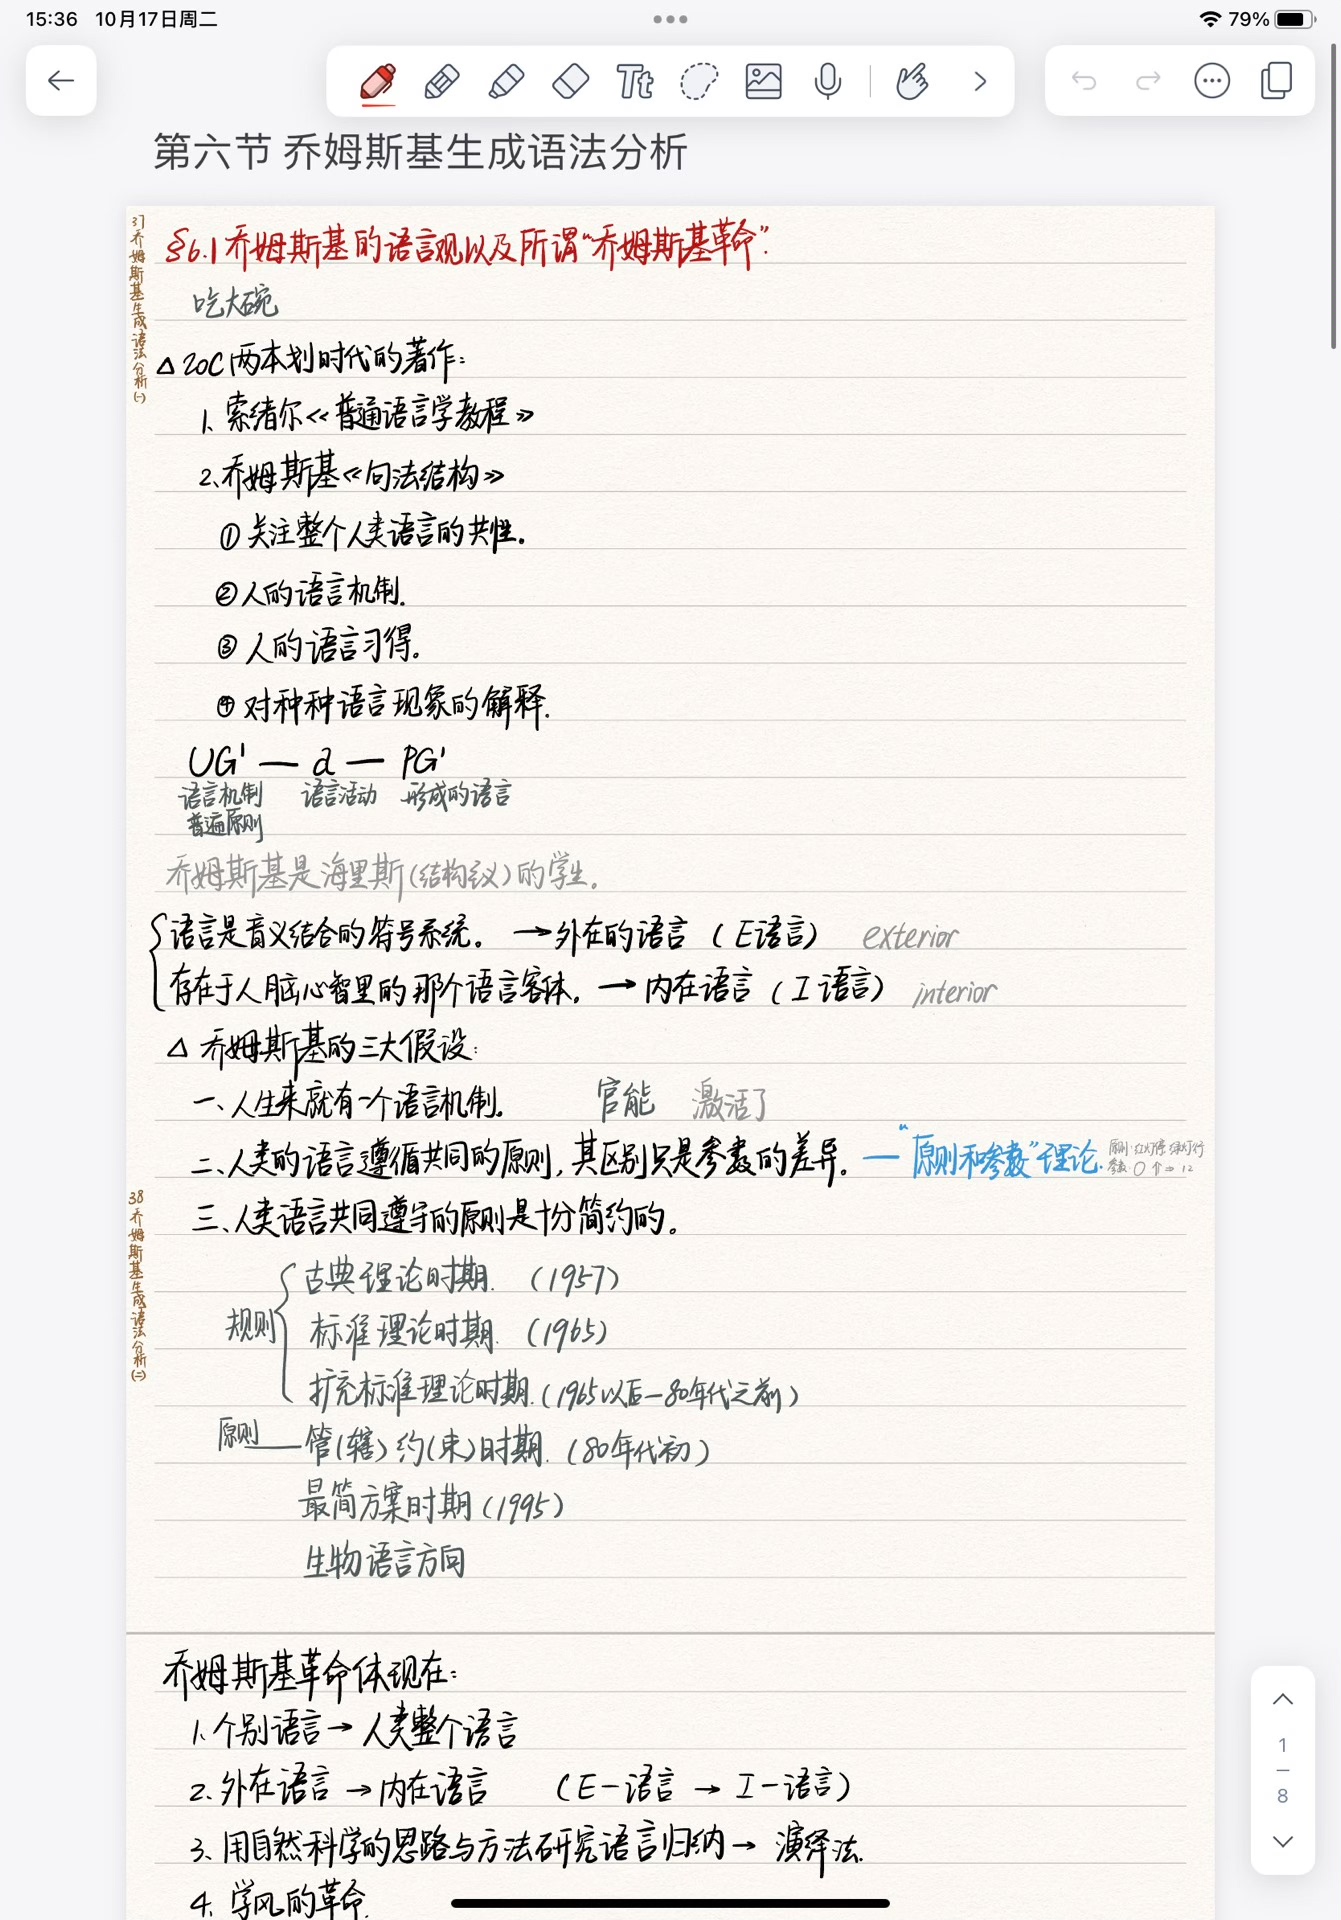 15:36 10月17日周二
79%
Tt
第六节 乔姆斯基生成语法分析
37 乔姆斯基生成语法分析(一)
§6.1 乔姆斯基的语言观以及所谓“乔姆斯基革命”.
吃大碗
△ 20C 两本划时代的著作:
1、索绪尔《普通语言学教程》
2、乔姆斯基《句法结构》
①关注整个人类语言的共性.
②人的语言机制.
③人的语言习得.
④对种种语言现象的解释.
UG' — a — PG'
语言机制 语言活动 形成的语言
普遍原则
乔姆斯基是海里斯(结构主义)的学生.
语言是音义结合的符号系统。→外在的语言（E语言） exterior
存在于人脑心智里的那个语言客体.→内在语言（I语言） interior
△ 乔姆斯基的三大假设:
一、人生来就有一个语言机制. 官能 激活了
二、人类的语言遵循共同的原则,其区别只是参数的差异。—“原则和参数”理论. 原则:红灯停绿灯行
参数:
38 乔姆斯基生成语法分析(二)
三、人类语言共同遵守的原则是十分简约的。
古典理论时期.（1957）
规则 标准理论时期.（1965）
扩充标准理论时期.(1965以后—80年代之前)
原则 — 管(辖)约(束)时期.(80年代初)
最简方案时期(1995)
生物语言方向
乔姆斯基革命体现在:
1、个别语言→人类整个语言
2、外在语言→内在语言 （E-语言→I-语言）
3、用自然科学的思路与方法研究语言归纳→演绎法.
4、学风的革命.
1
8